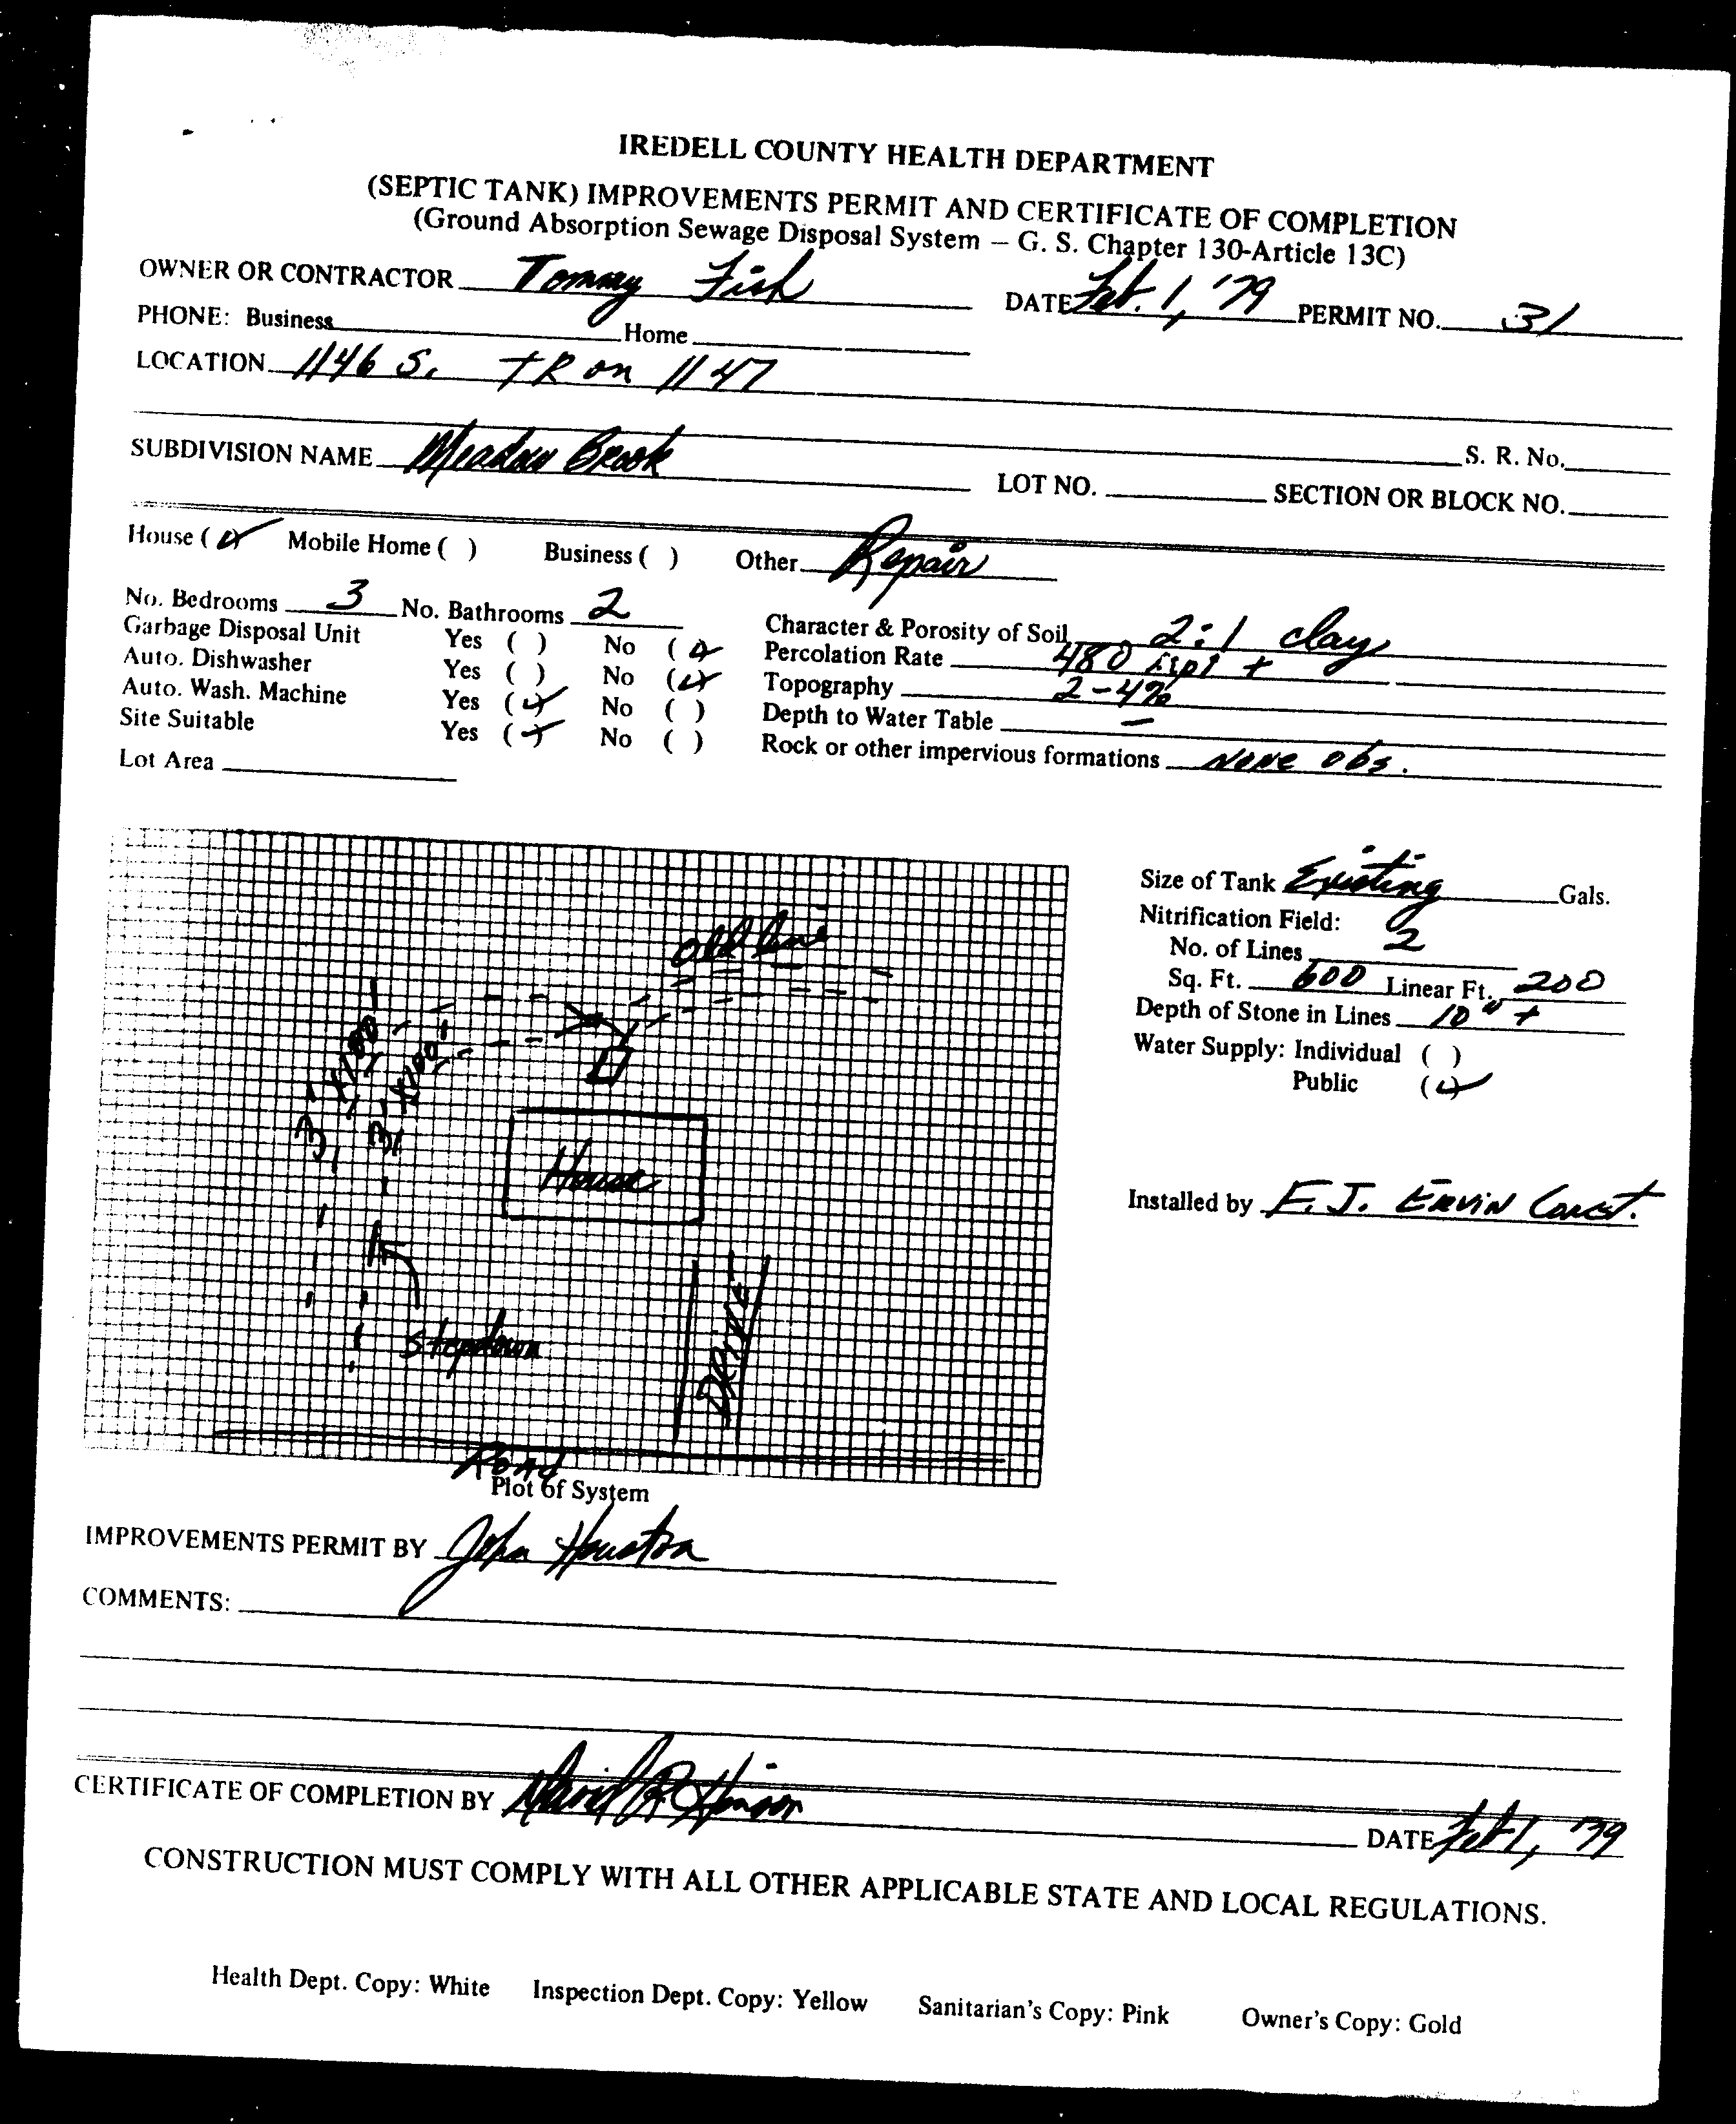 IREDELL COUNTY HEALTH DEPARTMENT
(SEPTIC TANK) IMPROVEMENTS PERMIT AND CERTIFICATE OF COMPLETION
(Ground Absorption Sewage Disposal System – G. S. Chapter 130-Article 13C)
OWNER OR CONTRACTOR Tommy Fish DATE Feb. 1, '79 PERMIT NO. 31
PHONE: Business Home
LOCATION 1146 S. TR on 1147
S. R. No.
SUBDIVISION NAME Meadow Brook LOT NO. SECTION OR BLOCK NO.
House (✓) Mobile Home ( ) Business ( ) Other Repair
No. Bedrooms 3 No. Bathrooms 2
Garbage Disposal Unit Yes ( ) No (✓)
Auto. Dishwasher Yes ( ) No (✓)
Auto. Wash. Machine Yes (✓) No ( )
Site Suitable Yes (✓) No ( )
Lot Area
Character & Porosity of Soil 2:1 clay
Percolation Rate 480 +
Topography 2-4%
Depth to Water Table –
Rock or other impervious formations None obs.
old line
3' X 100'
3' X 100'
House
Stepdown
DRIVE
Road
Plot of System
Size of Tank Existing Gals.
Nitrification Field:
No. of Lines 2
Sq. Ft. 600 Linear Ft. 200
Depth of Stone in Lines 10" +
Water Supply: Individual ( )
Public (✓)
Installed by F. J. ERVIN Const.
IMPROVEMENTS PERMIT BY John Houston
COMMENTS:
CERTIFICATE OF COMPLETION BY David R. Hinson
DATE Feb 1, '79
CONSTRUCTION MUST COMPLY WITH ALL OTHER APPLICABLE STATE AND LOCAL REGULATIONS.
Health Dept. Copy: White Inspection Dept. Copy: Yellow Sanitarian's Copy: Pink Owner's Copy: Gold